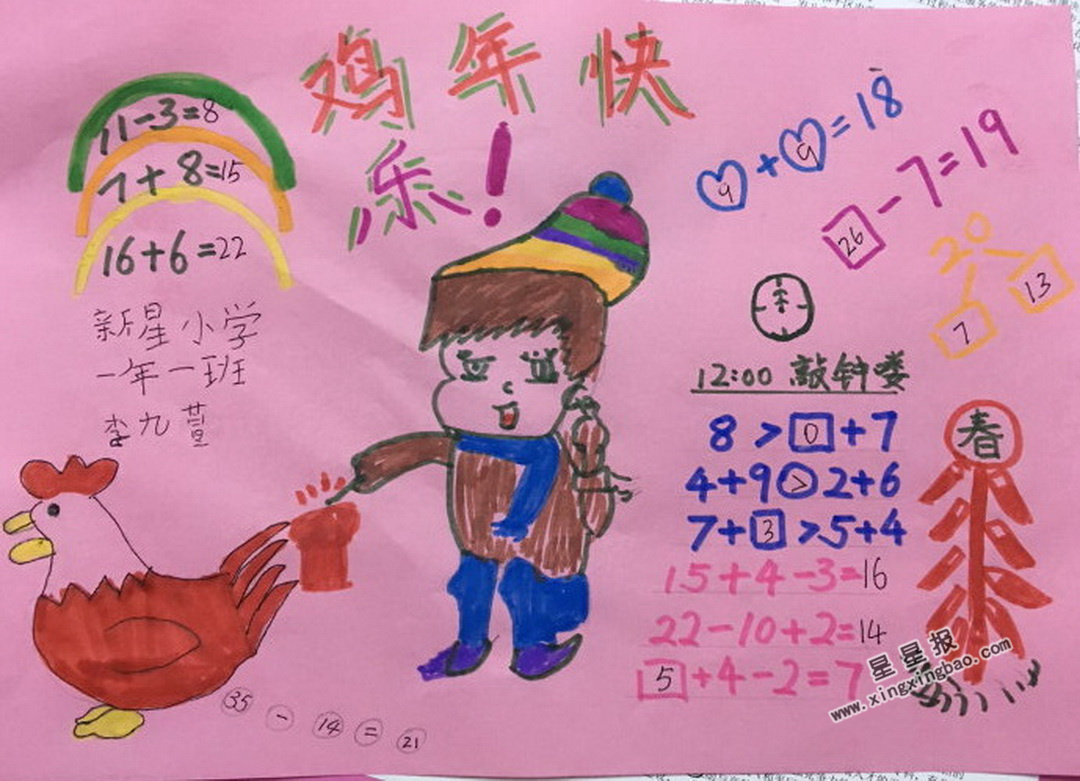 鸡年快
乐!
11-3=8
7+8=15
16+6=22
新星小学
一年一班
李九萱
♡9+♡9=18
26-7=19
20
7 13
12:00 敲钟喽
8>0+7
4+9>2+6
7+3>5+4
15+4-3=16
22-10+2=14
5+4-2=7
春
35-14=21
星星报
www.xingxingbao.com